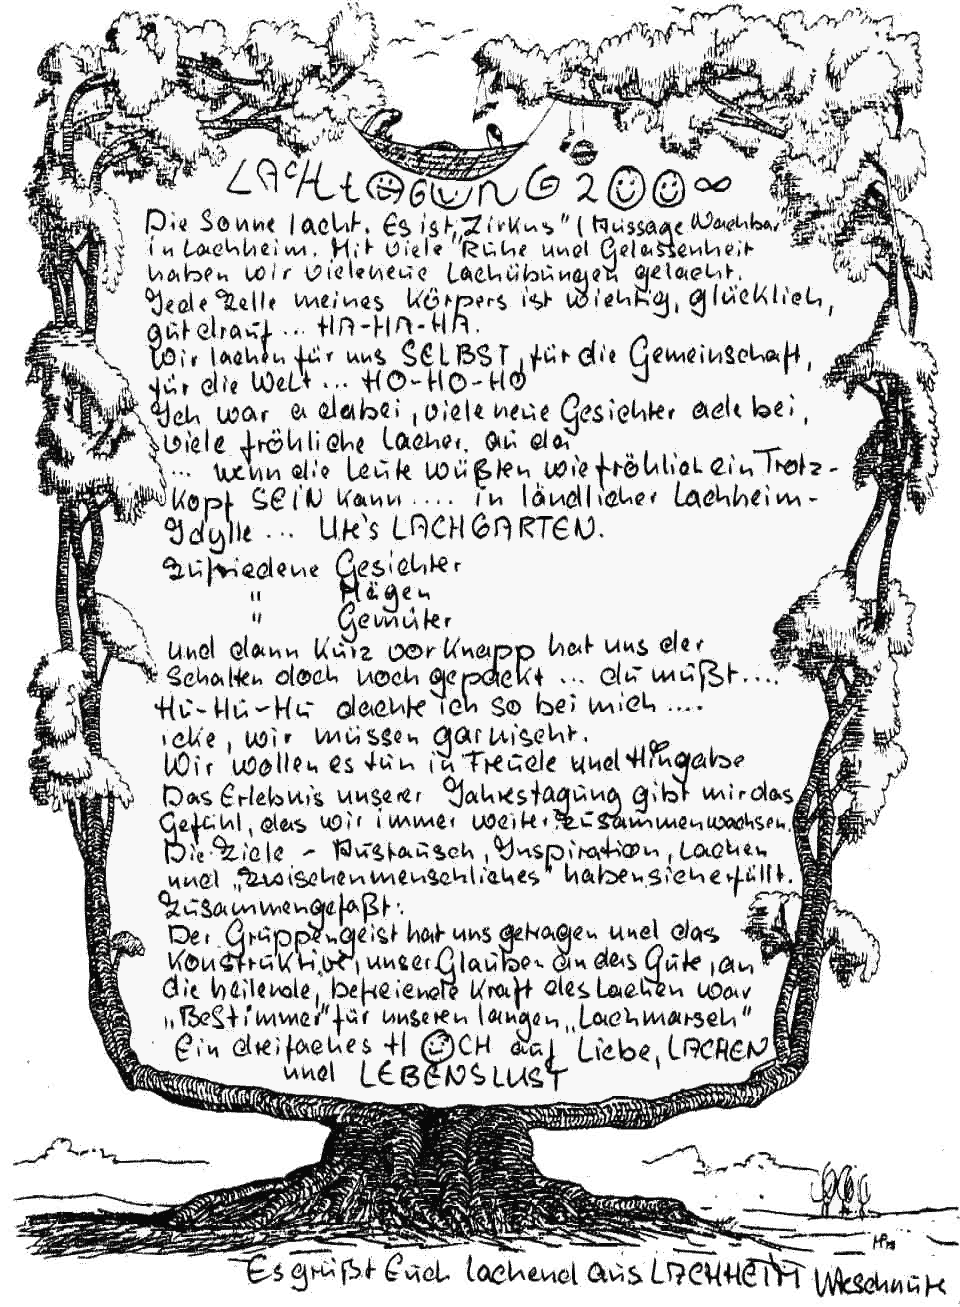 LACHtAGUNG 200∞
Die Sonne lacht. Es ist „Zirkus" (Aussage Wachbar
in Lachheim. Mit viele Ruhe und Gelassenheit
haben wir vieleneue Lachübungen gelacht.
Jede Zelle meines Körpers ist wichtig, glücklich,
gut drauf ... HA-HA-HA.
Wir lachen für uns SELBST, für die Gemeinschaft,
für die Welt ... HO-HO-HO
Ich war a dabei, viele neue Gesichter ade bei,
viele fröhliche Lacher, au da
... wenn die Leute wüßten wie fröhlich ein Trotz-
kopf SEIN kann .... in ländlicher Lachheim-
Idylle ... Ute's LACHGARTEN.
Zufriedene Gesichter
" Mägen
" Gemüter
und dann kurz vor Knapp hat uns der
Schalten doch noch gepackt ... du mußt ....
Hu-Hu-Hu dachte ich so bei mich ....
icke, wir müssen garnischt.
Wir wollen es tun in Freude und Hingabe
Das Erlebnis unserer Jahrestagung gibt mir das
Gefühl, das wir immer weiter zusammenwachsen.
Die Ziele - Austausch, Inspiration, Lachen
und „Zwischenmenschliches" haben sich erfüllt.
Zusammengefaßt:
Der Gruppengeist hat uns getragen und das
Konstruktive, unser Glauben an das Gute, an
die heilende, befreiende Kraft des Lachen war
„Bestimmer" für unseren langen „Lachmarsch"
Ein dreifaches HOCH auf Liebe, LACHEN
und LEBENSLUST
Es grüßt Euch lachend aus LACHHEIM